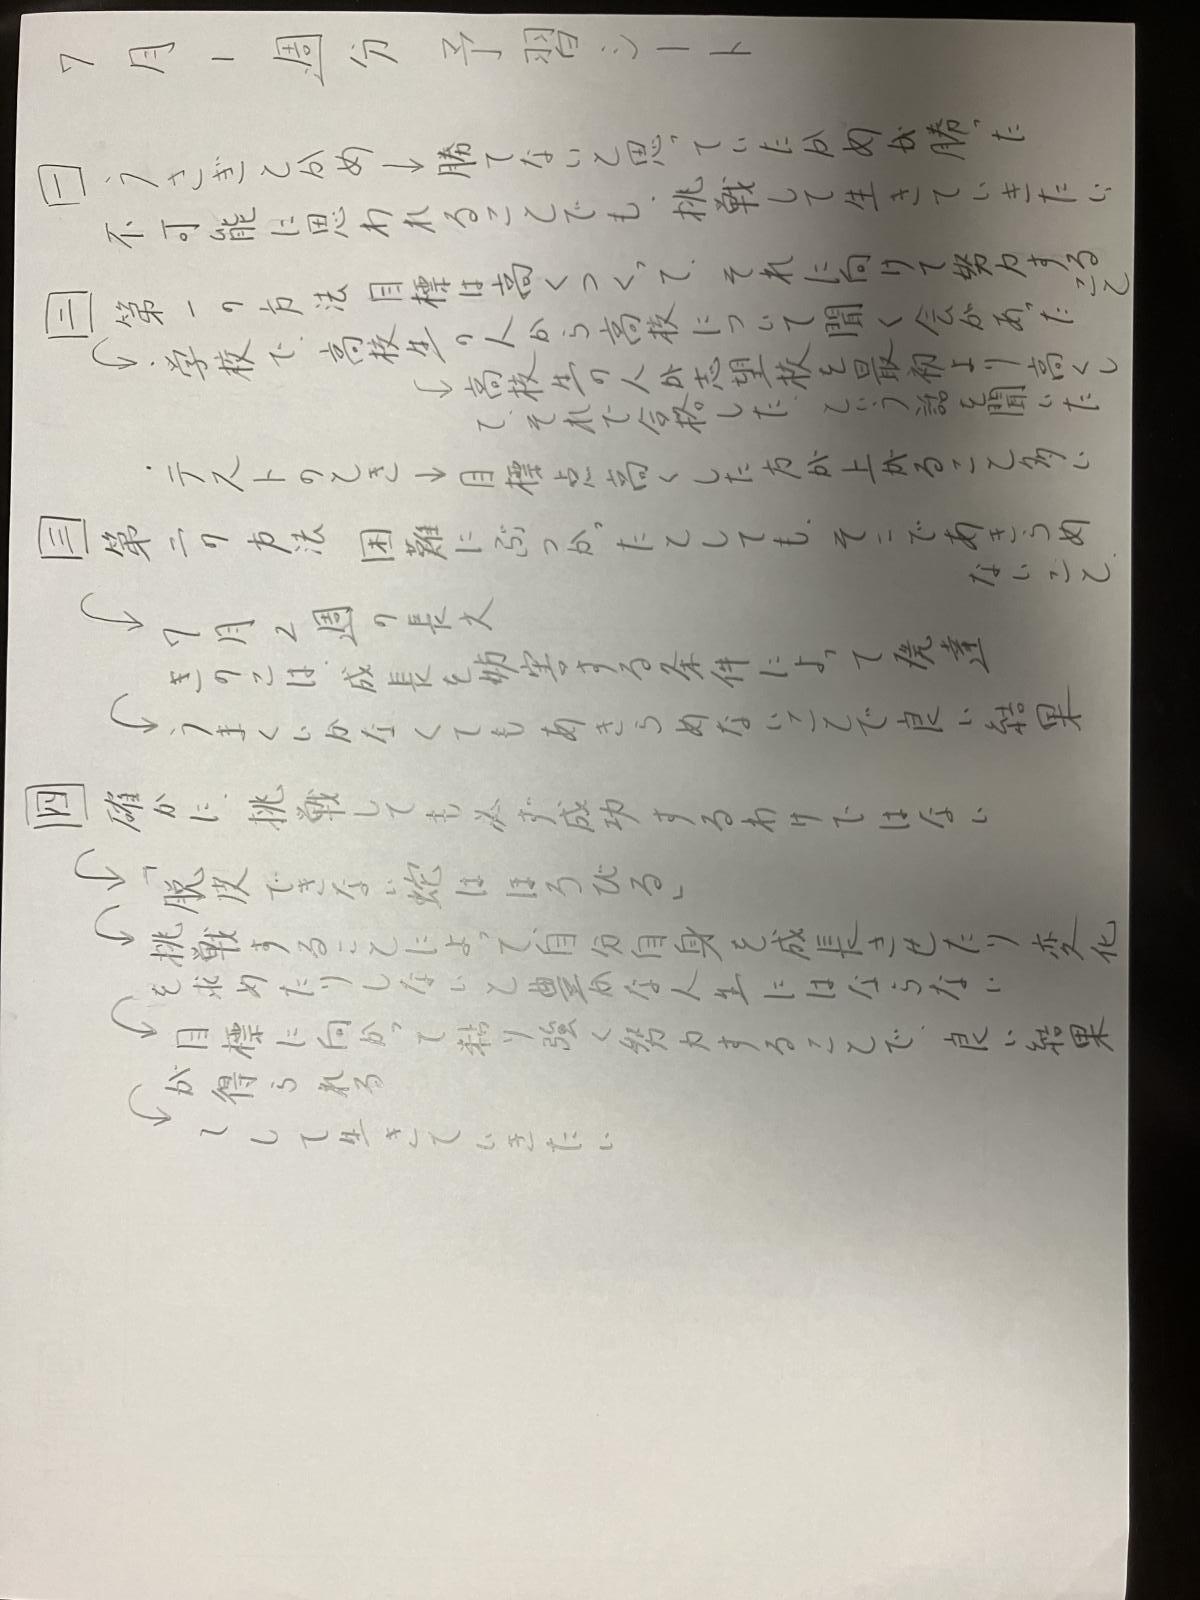 7月1週分 予習シート
一 うさぎとかめ→勝てないと思っていたかめが勝った
不可能に思われることでも、挑戦して生きていきたい
二 第一の方法 目標は高くつくって、それに向けて努力すること
・学校で、高校生の人から高校について聞く会があった
→高校生の人が志望校を最初より高くし
て、それで合格した、という話を聞いた
・テストのとき→目標点高くした方が上がること多い
三 第二の方法 困難にぶつかったとしても、そこであきらめ
ないこと
7月2週の長文
きのこは、成長を妨害する条件によって発達
うまくいかなくてもあきらめないことで良い結果
四 確かに、挑戦しても必ず成功するわけではない
「脱皮できない蛇はほろびる」
挑戦することによって自分自身を成長させたり変化
を求めたりしないと豊かな人生にはならない
目標に向かって粘り強く努力することで、良い結果
が得られる
〜して生きていきたい